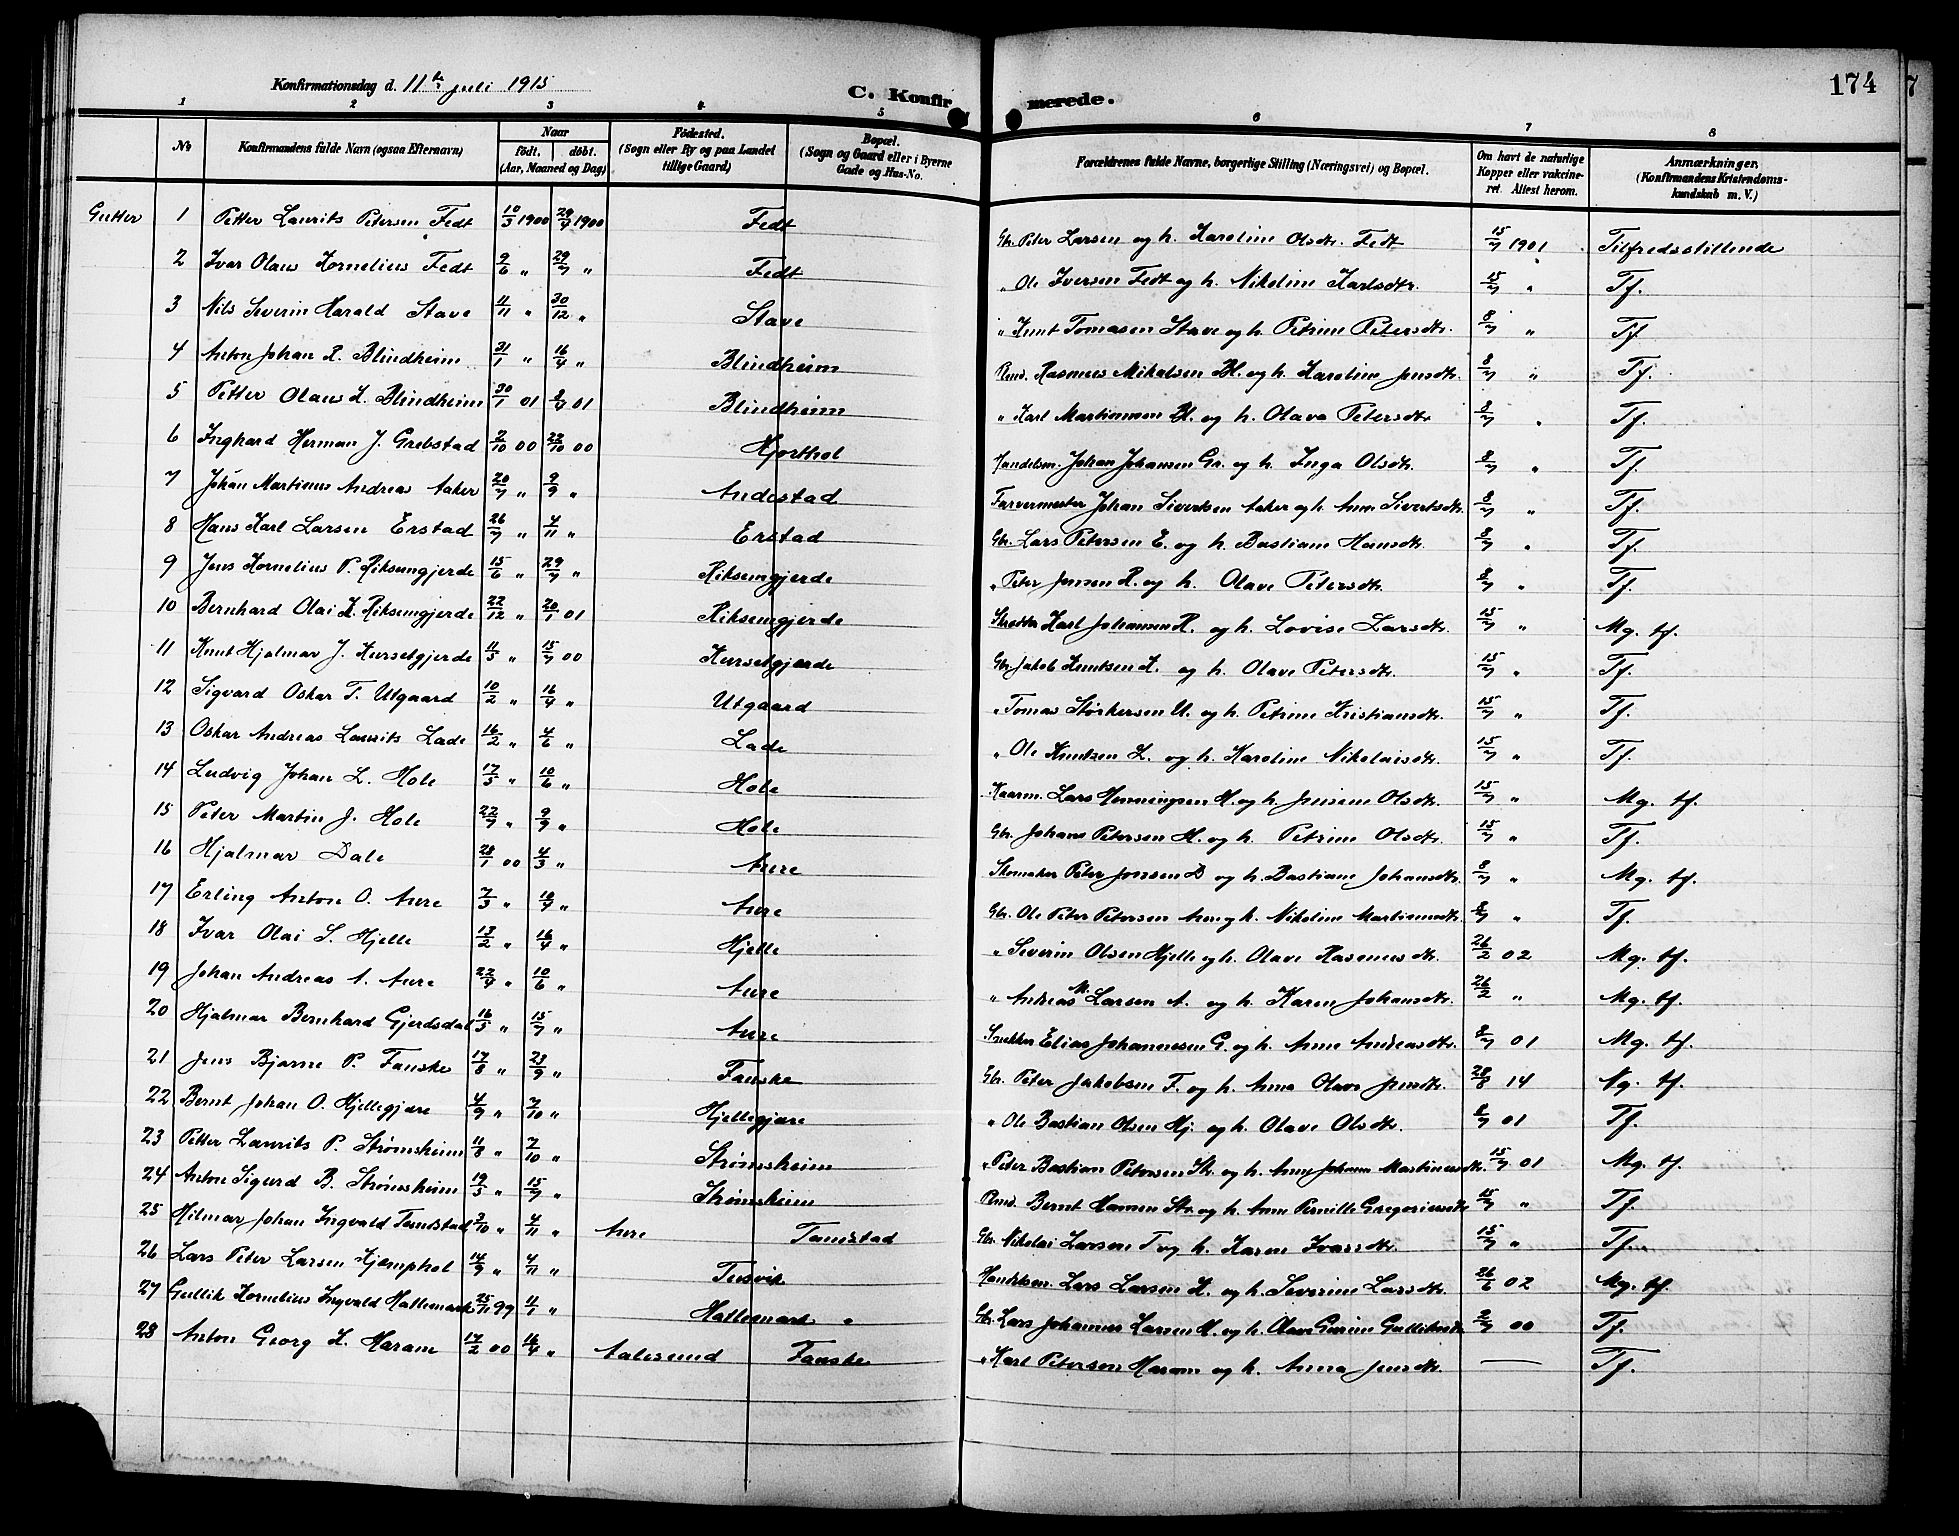 Konfirmationsdag d. 11te juli 1915
C. Konfirmerede.
174
1 2 3 4 5 6 7 8
No
Konfirmandens fulde Navn (ogsaa Efternavn)
Naar
født, døbt.
(Aar, Maaned og Dag)
Fødested.
(Sogn eller By og paa Landet tillige Gaard)
Bopæl.
(Sogn og Gaard eller i Byerne Gade og Hus-No.
Forældrenes fulde Navne, borgerlige Stilling (Næringsvei) og Bopæl.
Om havt de naturlige Kopper eller vakcineret. Attest herom.
Anmærkninger.
(Konfirmandens Kristendomskundskab m. V.)
Gutter 1 Petter Laurits Petersen Fedt 10/3 1900 29/7 1900 Fedt Gbr. Peter Larsen og h. Karoline Olsdtr. Fedt 15/7 1901 Tilfredsstillende
2 Ivar Olaus Kornelius Fedt 9/6 " 29/7 " Fedt " Ole Iversen Fedt og h. Nikoline Karlsdtr. 15/7 " Tf.
3 Nils Severin Harald Stave 11/11 " 30/12 " Stave " Knut Tomasen Stave og h. Petrine Petersdtr. 8/7 " Tf.
4 Anton Johan R. Blindheim 31/1 " 16/4 " Blindheim Rasmus Mikalsen Bl. og h. Karoline Jensdtr. 8/7 " Tf.
5 Petter Olaus K. Blindheim 30/1 01 8/4 01 Blindheim " Karl Martinusen Bl. og h. Olava Petersdtr 8/7 " Tf.
6 Inghard Herman J. Grebstad 7/10 00 22/10 00 Hjorthol Handelsm. Johan Johansen Gr. og h. Inga Olsdtr. 8/7 " Tf.
7 Johan Martinus Andreas Aaker 20/7 " 9/9 " Andestad Farvermester Johan Sivertsen Aaker og h. Anne Sivertsdtr. 8/7 " Tf.
8 Hans Karl Larsen Erstad 26/7 " 4/11 " Erstad Gbr. Lars Petersen E. og h. Bastiane Hansdtr. 8/7 " Tf.
9 Jens Kornelius P. Riksemgjerde 15/6 " 29/7 " Riksemgjerde " Peter Jensen R. og h. Olave Petersdtr. 8/7 " Tf.
10 Bernhard Olai K. Riksemgjerde 22/12 " 20/1 01 Riksemgjerde Skrædder Karl Johansen R. og h. Lovise Larsdtr. 15/7 " Mg. tf.
11 Knut Hjalmar J. Kursetgjerde 11/5 " 15/7 00 Kursetgjerde Gbr. Jakob Knutsen K. og h. Olave Petersdtr. 15/7 " Tf.
12 Sigvard Oskar T. Utgaard 10/2 " 16/4 " Utgaard " Tomas Størkersen U. og h. Petrine Kristiansdtr. 15/7 " Tf.
13 Oskar Andreas Laurits Lade 16/2 " 4/6 " Lade " Ole Knutsen L. og h. Karoline Nikolaisdtr. 15/7 " Tf.
14 Ludvig Johan L. Hole 17/5 " 10/6 " Hole Kaarm. Lars Henningsen H. og h. Jensine Olsdtr. 15/7 " Mg. tf.
15 Peter Martin J. Hole 22/7 " 9/9 " Hole Gbr. Johans Petersen H. og h. Petrine Olsdtr. 15/7 " Tf.
16 Hjalmar Dale 28/1 00 4/3 " Aure Skomaker Peter Jonsen D og h. Bastiane Johansdtr. 8/7 " Mg. tf.
17 Erling Anton O. Aure 7/3 " 10/4 " Aure Gbr. Ole Peter Petersen Aure og h. Nikoline Martinusdtr 8/7 " Tf.
18 Ivar Olai S. Hjelle 13/2 " 16/4 " Hjelle " Severin Olsen Hjelle og h. Olave Rasmusdtr. 26/2 02 Mg. tf.
19 Johan Andreas A. Aure 22/4 " 10/6 " Aure " Andreas M. Larsen A. og h. Karen Johansdtr. 26/2 " Mg. tf.
20 Hjalmar Bernhard Gjerdsdal 16/5 " 15/7 " Aure Snekker Elias Johannessen G. og h. Anne Andreasdtr. 8/7 01 Mg. tf.
21 Jens Bjarne P. Fauske 17/8 " 23/9 " Fauske Gbr. Peter Jakobsen F. og h. Anna Olave Jensdtr. 28/8 14 Ng. tf.
22 Bernt Johan O. Hjellegjære 4/9 " 7/10 " Hjellegjære " Ole Bastian Olsen Hj. og h. Olave Olsdtr. 8/7 01 Tf.
23 Petter Laurits P. Strømsheim 11/8 " 7/10 " Strømsheim " Peter Bastian Petersen Str. og h. Anne Johanne Martinusdtr. 15/7 01 Mg. tf.
24 Anton Sigurd B. Strømsheim 19/5 " 15/7 " Strømsheim Bernt Hansen Str. og h. Anne Pernille Gregoriusdtr 15/7 " Tf.
25 Hilmar Johan Ingvald Tandstad 3/10 " 4/11 " Aure Tandstad Gbr. Nikolai Larsen T og h. Karen Ivarsdtr. 15/7 " Tf.
26 Lars Peter Larsen Kjemphol 14/9 " 4/11 " Tusvik Handelsm. Lars Larsen K. og h. Severine Larsdtr. 26/6 02 Mg. tf.
27 Gullik Kornelius Ingvald Hatlemark 25/11 99 11/1 " Hatlemark " Gbr. Lars Johannes Larsen H. og h. Olave Gurine Gulliksdtr 2/7 00 Tf.
28 Anton Georg K. Haram 17/2 00 16/4 " Aalesund Fauske " Karl Petersen Haram og h. Anna Jensdtr. — Tf.